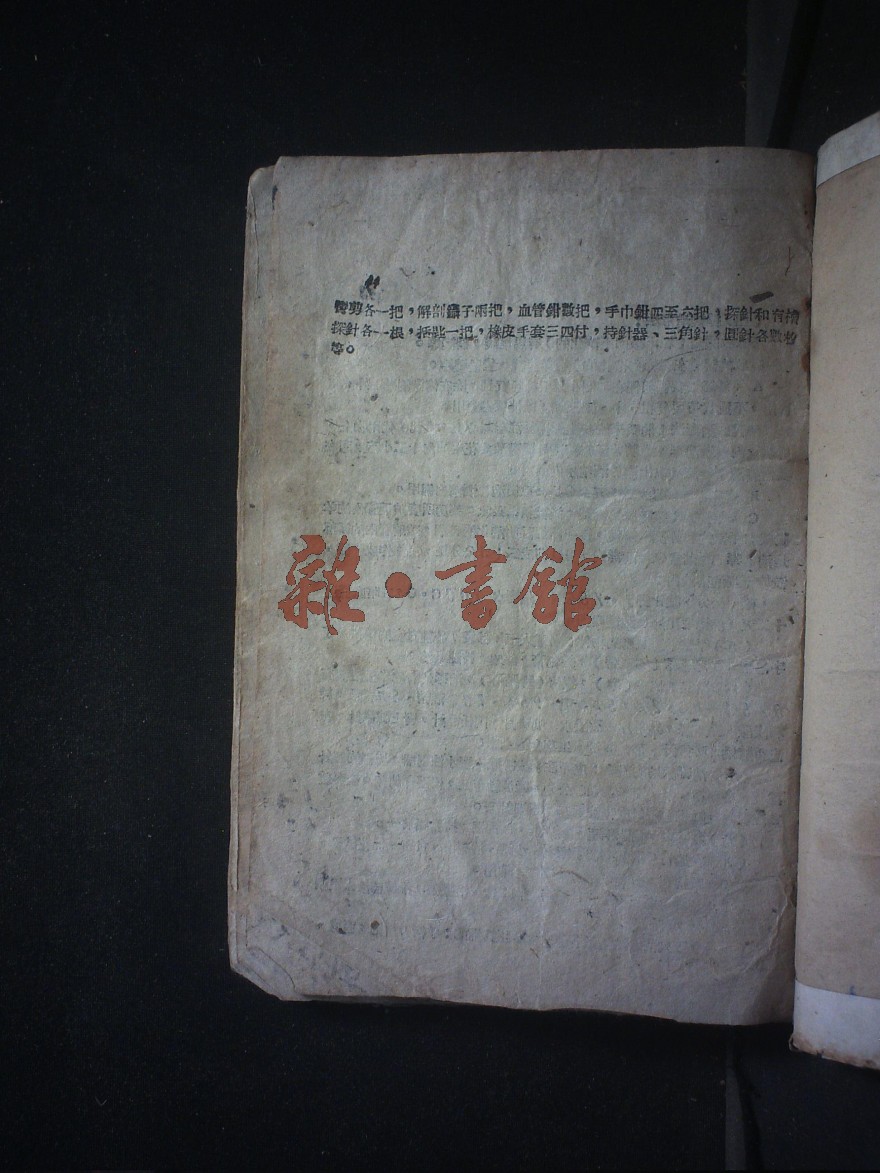 彎剪各一把，解剖鑷子兩把，血管鉗數把，手巾鉗四至六把，探針和有槽
探針各一根，括匙一把，橡皮手套三四付，持針器、三角針，圓針各數枚
等。
雜·書館